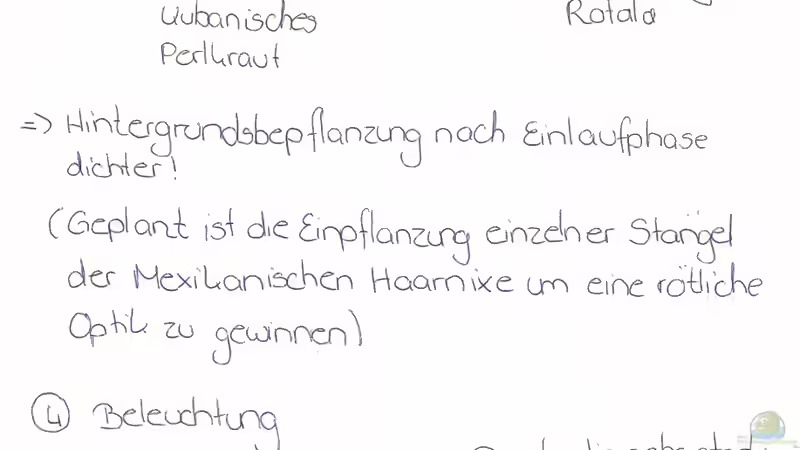 Kubanisches Rotala
Perlkraut
=> Hintergrundsbepflanzung nach Einlaufphase
dichter!
(Geplant ist die Einpflanzung einzelner Stängel
der Mexikanischen Haarnixe um eine rötliche
Optik zu gewinnen)
④ Beleuchtung